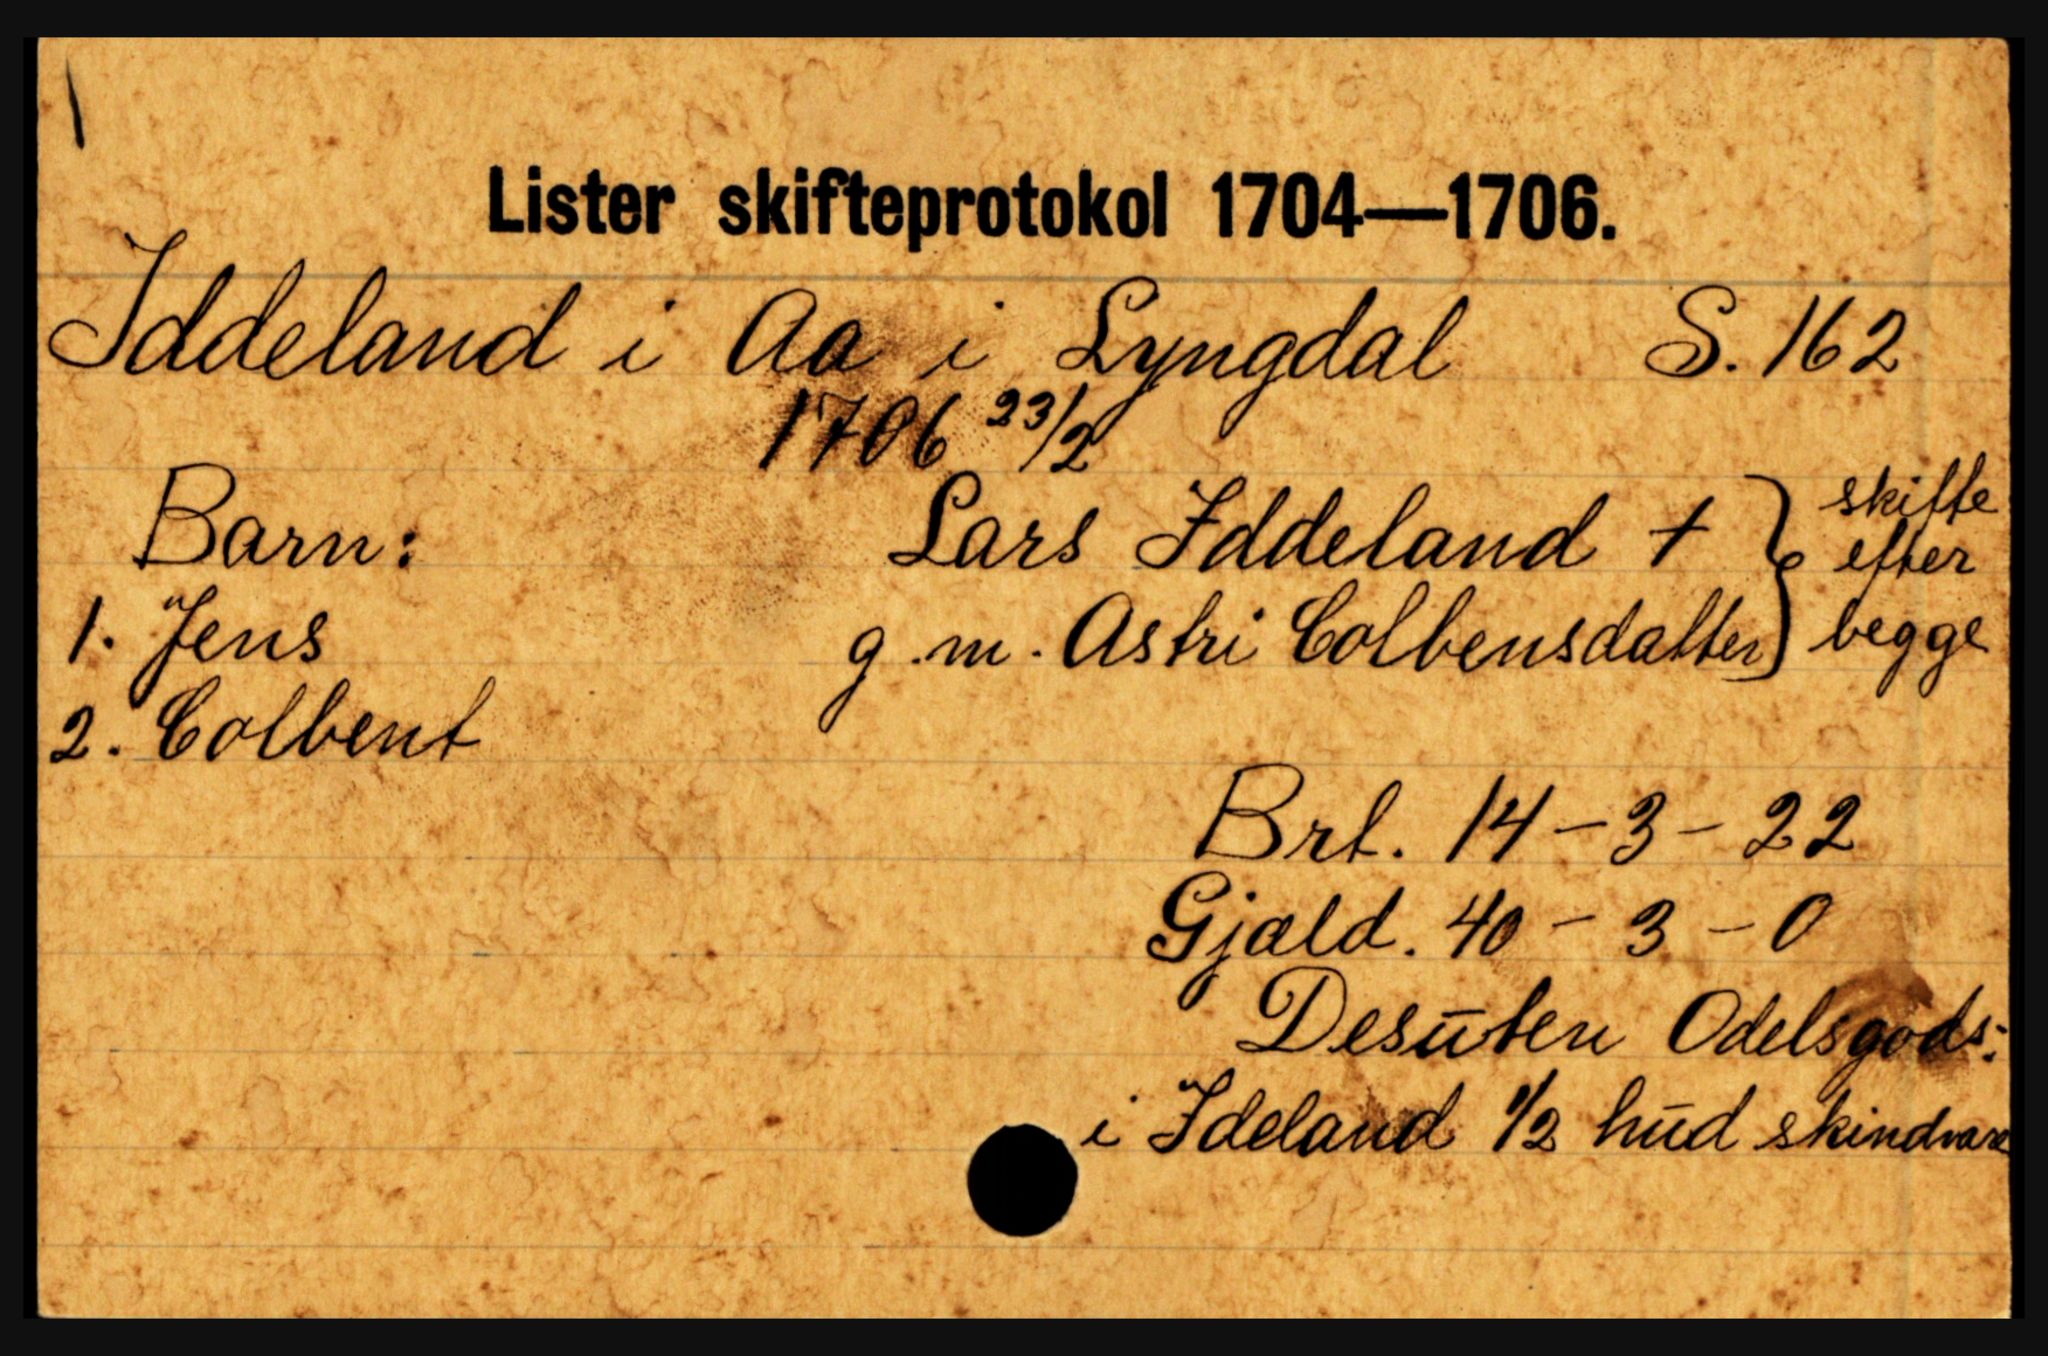 Lister skifteprotokol 1704—1706.
Iddeland i Aa i Lyngdal S. 162
1706 23/2
Barn: Lars Iddeland + } skifte efter begge
1. Jens g.m. Astri Colbensdatter
2. Colbent
Brt. 14 - 3 - 22
Gjæld. 40 - 3 - 0
Desūten Odelsgods:
i Ideland 1/2 hūd skindvare